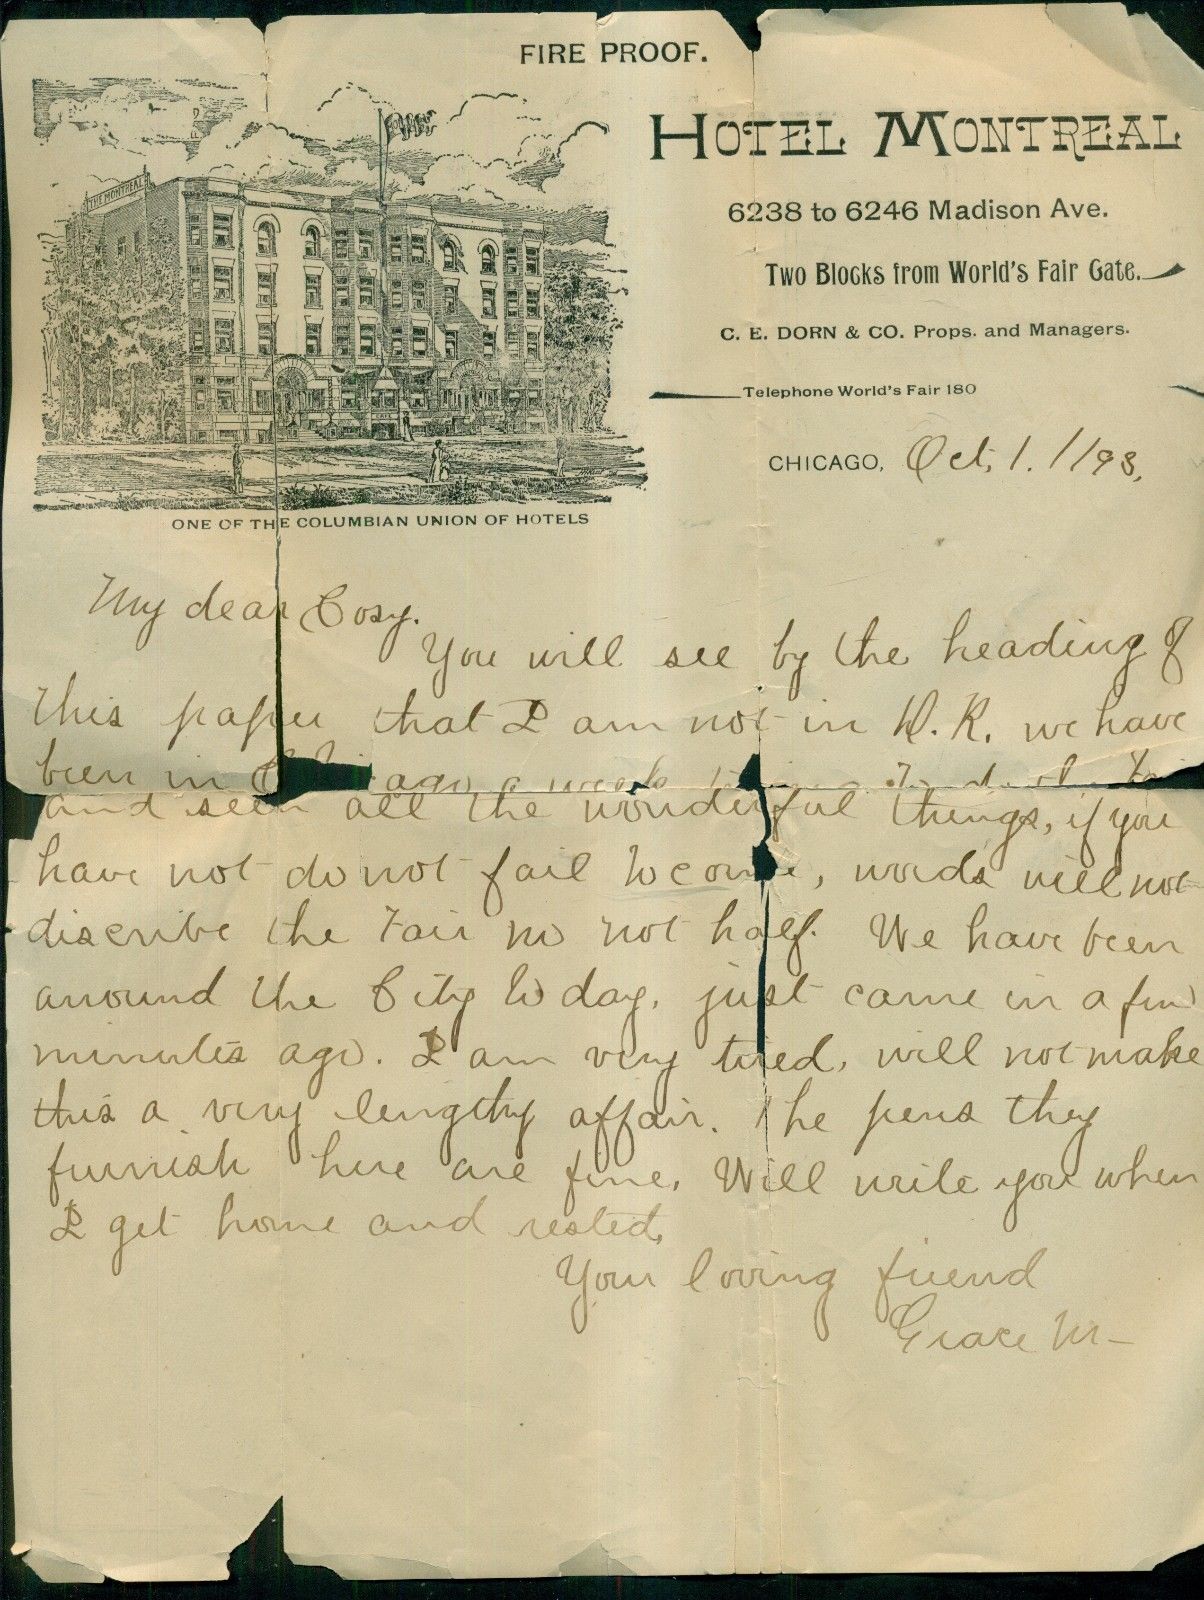 FIRE PROOF.
THE MONTREAL
HOTEL MONTREAL
6238 to 6246 Madison Ave.
Two Blocks from World's Fair Gate.
C. E. DORN & CO. Props. and Managers.
Telephone World's Fair 180
CHICAGO, Oct, 1. 1193,
ONE OF THE COLUMBIAN UNION OF HOTELS
My dear Cosy.
You will see by the heading of
this paper that I am not in D. R. we have
been in Chicago a week
and seen all the wonderful things, if you
have not do not fail to come, words will not
discribe the Fair no not half. We have been
arround the City to day, just came in a few
minutes ago. I am very tired, will not make
this a very lengthy affair. The pens they
furnish here are fine, Will write you when
I get home and rested,
Your loving friend
Grace M-